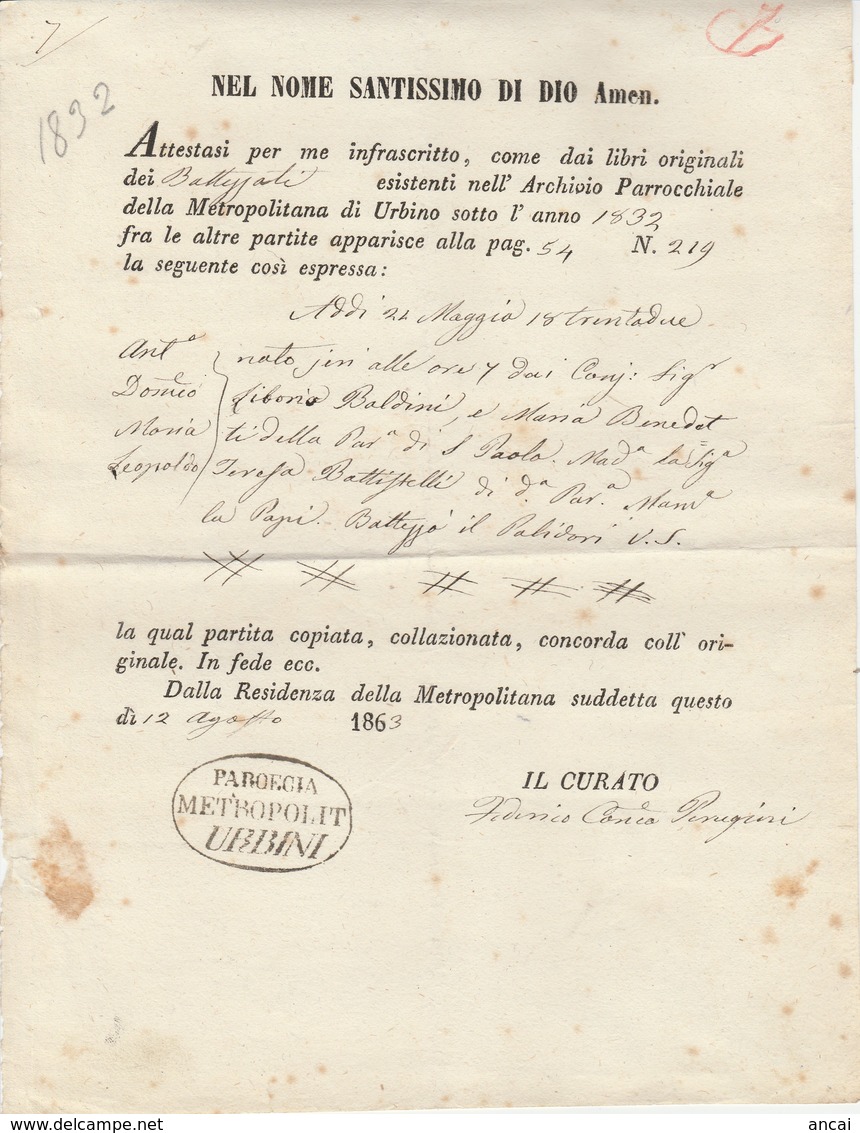 7
1832
NEL NOME SANTISSIMO DI DIO Amen.
Attestasi per me infrascritto, come dai libri originali
dei Battezzati esistenti nell' Archivio Parrocchiale
della Metropolitana di Urbino sotto l' anno 1832
fra le altre partite apparisce alla pag. 54 N. 219
la seguente così espressa:
Addi 22 Maggio 18trentadue
Ant.o nato jeri alle ore 7 dai Conj: Sigr
Dom.co Liborio Baldini, e Maria Benedet
Maria ti della Par.a di S Paolo. Mad.a la Sig.a
Leopoldo Teresa Battistelli di d.a Par.a Mam.a
la Papi. Battezzò il Polidori V.S.
la qual partita copiata, collazionata, concorda coll' ori-
ginale. In fede ecc.
Dalla Residenza della Metropolitana suddetta questo
dì 12 Agosto 1863
PAROECIA
METROPOLIT
URBINI
IL CURATO
Federico Perugini
www.delcampe.net
ancai